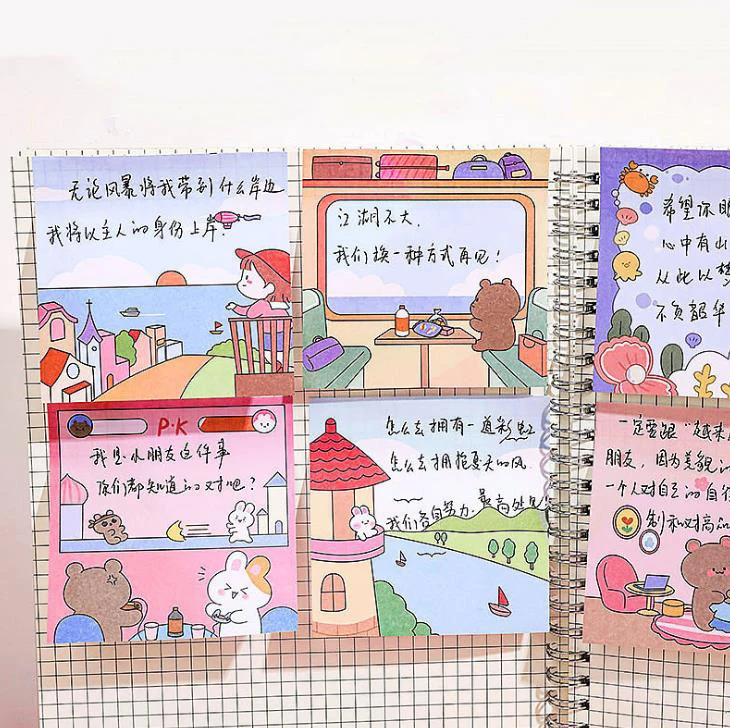 无论风暴将我带到什么岸边
我将以主人的身份上岸.
江湖不大.
我们换一种方式再见!
希望你眼
心中有山
从此以梦
不负韶华
P·K
我是小朋友这件事
你们都知道的对吧?
怎么去拥有一道彩虹
怎么去拥抱夏天的风
我们各自努力.最高处见
一定要跟"越来
朋友,因为美貌的
一个人对自己的自律
制和对高品